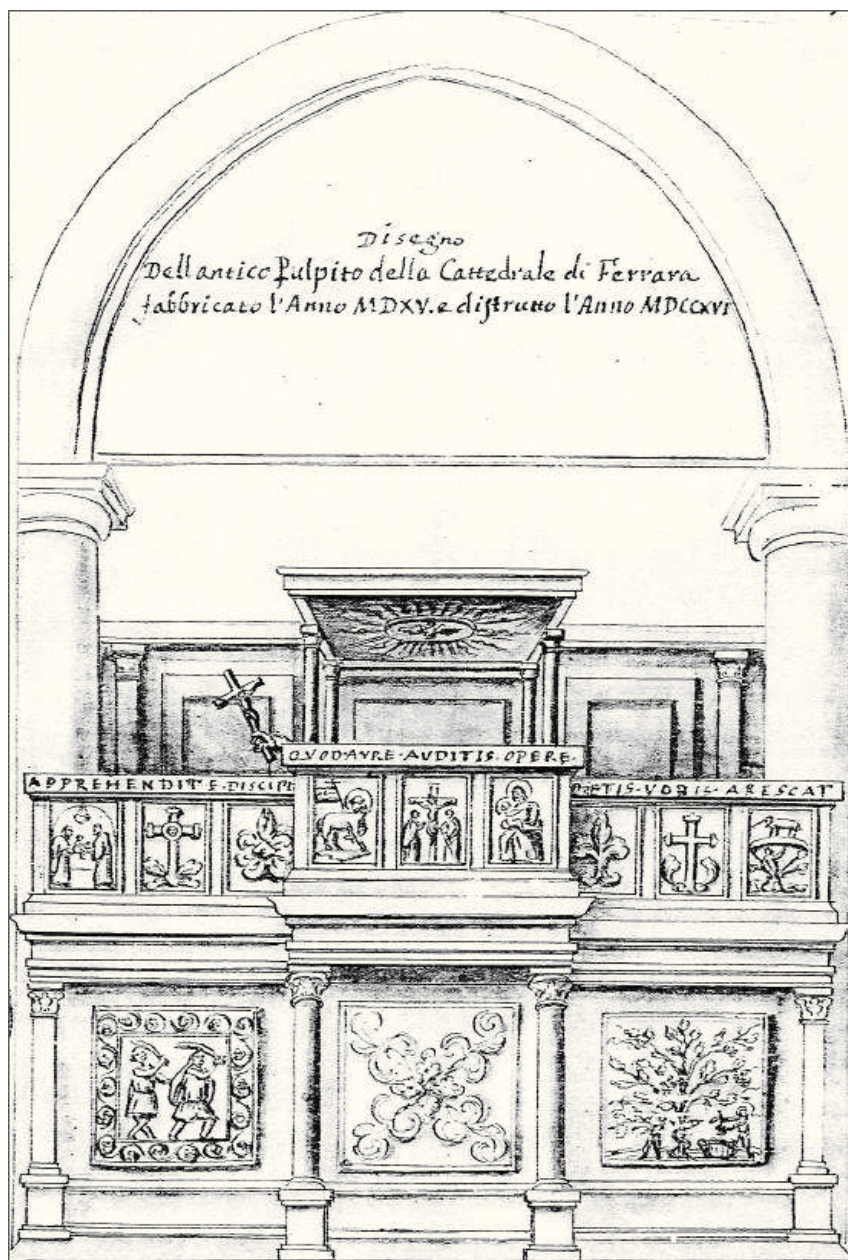 Disegno
Dell antico Pulpito della Cattedrale di Ferrara
fabbricato l'Anno MDXV. e distrutto l'Anno MDCCXVI
QVOD·AVRE·AUDITIS·OPERE·
APPREHENDITE·DISCIPL
PLETIS·VOBIS·ARESCAT